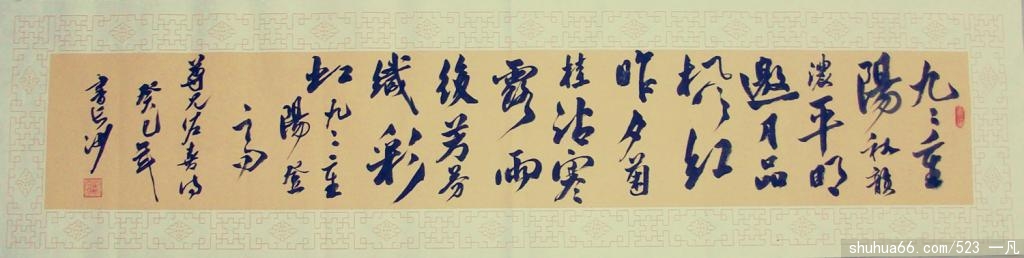 九〻重
陽秋韻
濃平明
邀月品
楓紅
昨夕菊
桂沾寒
露雨
後芳芬
織彩
虹九〻重
陽登
高
尊兄
癸巳年
書
shuhua66.com/523 一凡